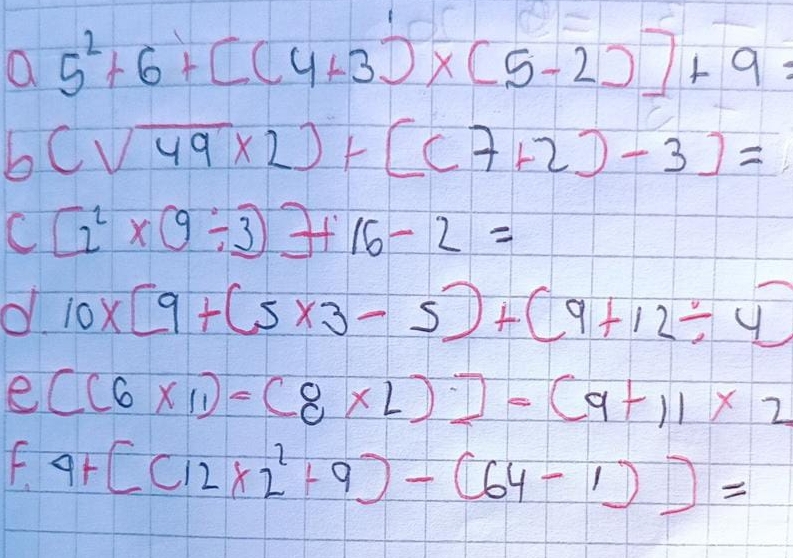 a 5² + 6 + [(4+3) × (5-2)] + 9 =
b (√49 × 2) + [(7+2) - 3] =
c [2² × (9 ÷ 3)] + 16 - 2 =
d. 10 × [9 + (5 × 3 - 5) + (9 + 12 ÷ 4)
e [(6 × 11) - (8 × 2)] - (9 + 11 × 2
f. 9 + [(12 × 2² + 9) - (64 - 1)] =